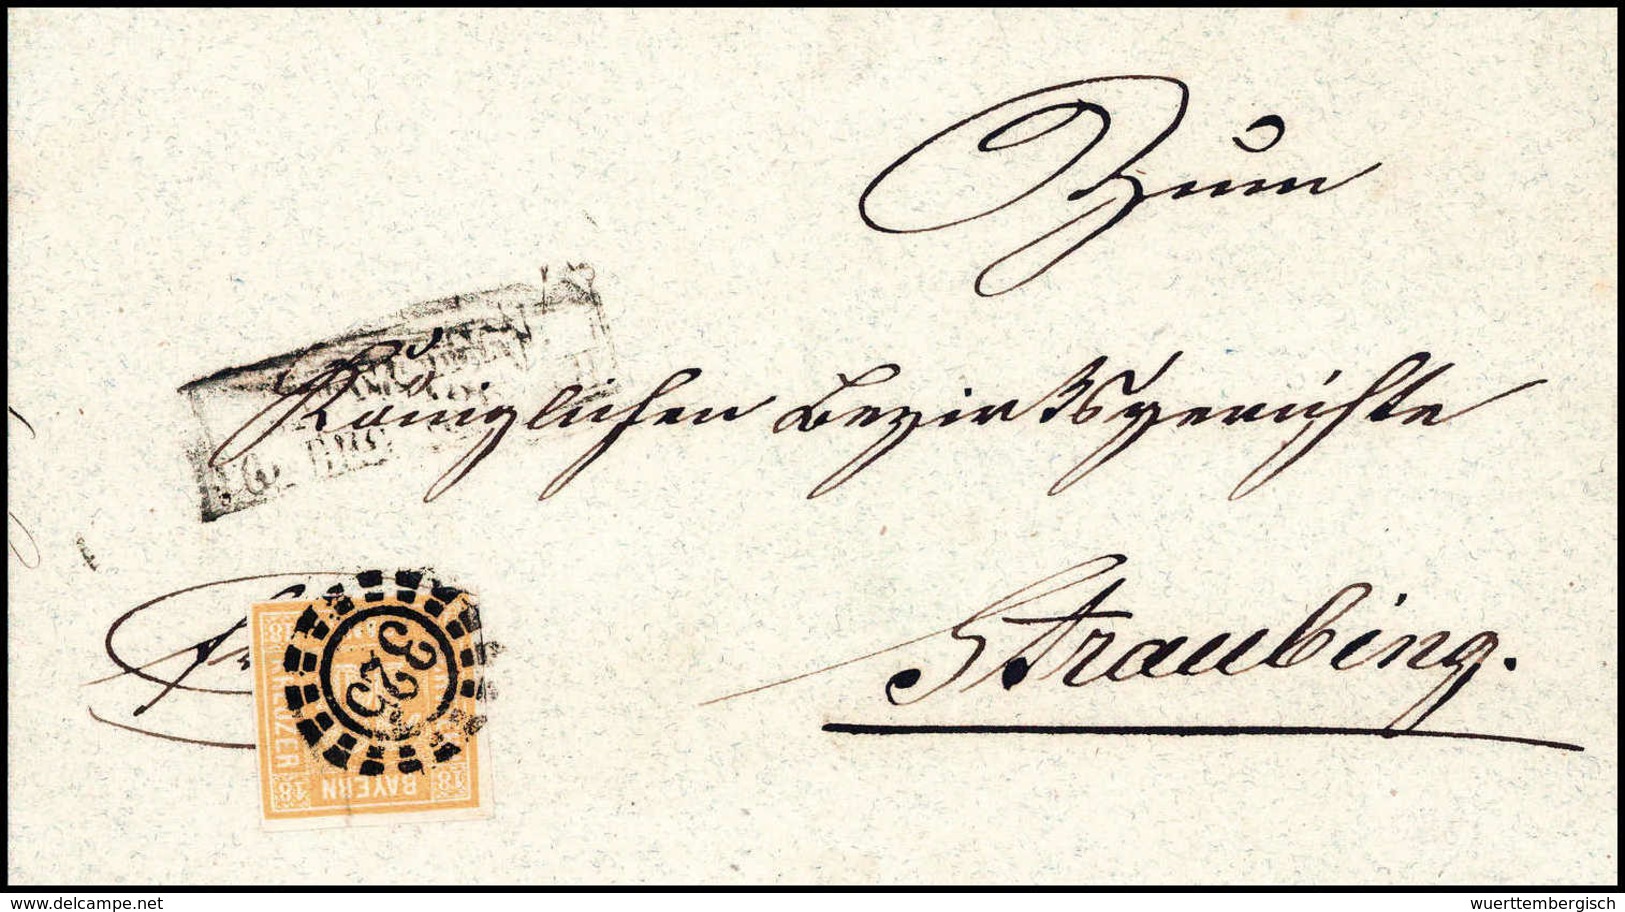 Zum
Königlichen Bezirksgerichte
Straubing.
325
18
18
KREUZER
18
BAYERN
18
delcampe.net
wuerttembergisch